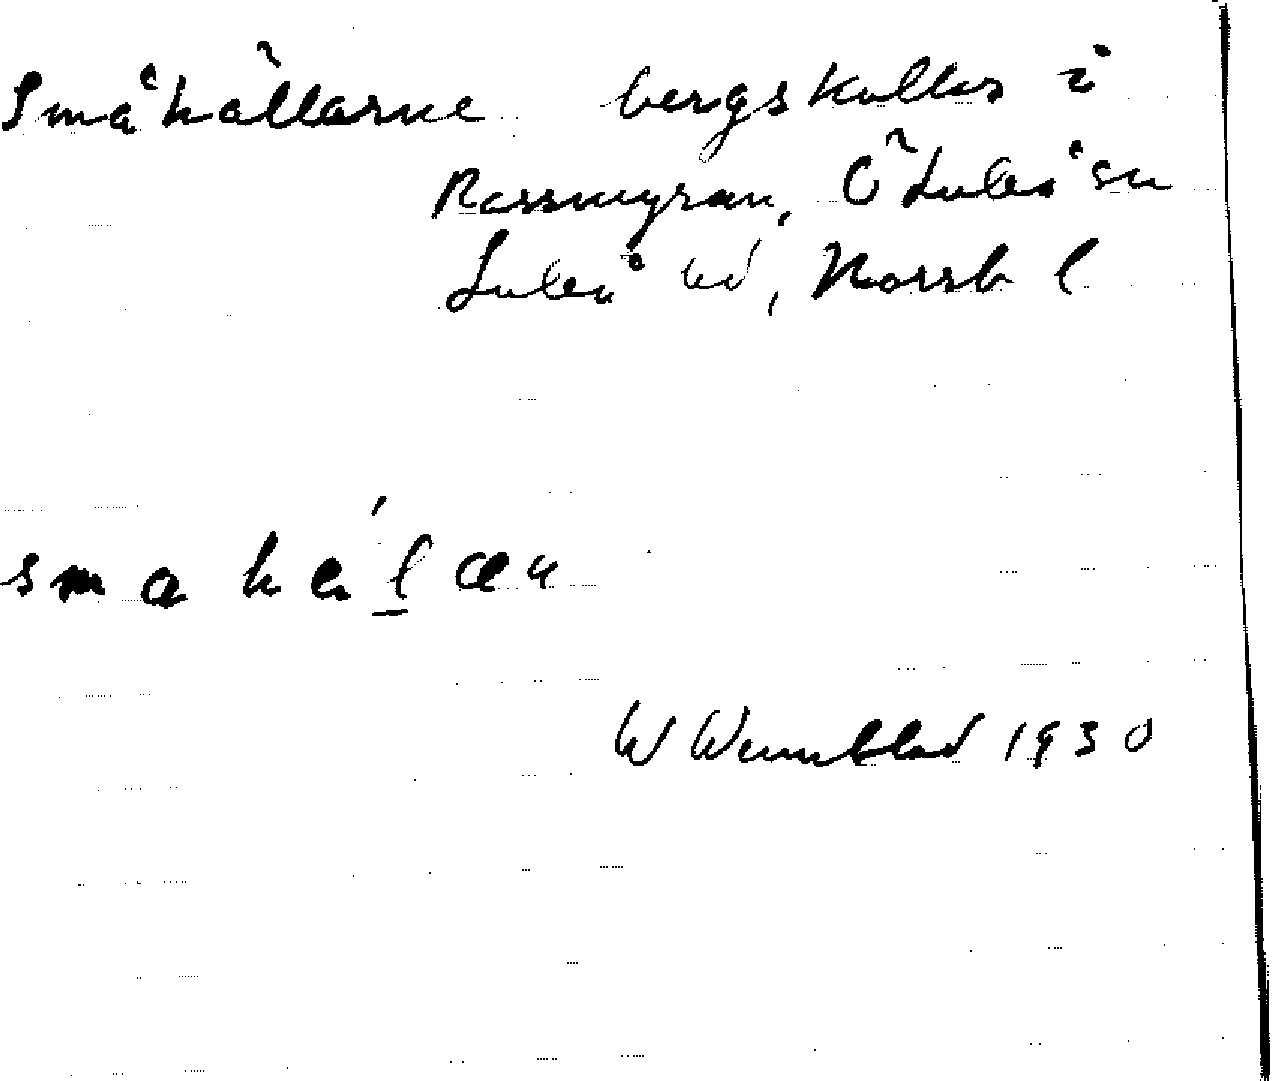 Småhällarne bergskullar i
Rossmyran, Ö Luleå sn
Luleå td, Norrb l
sma hélæn
W Wennblad 1930